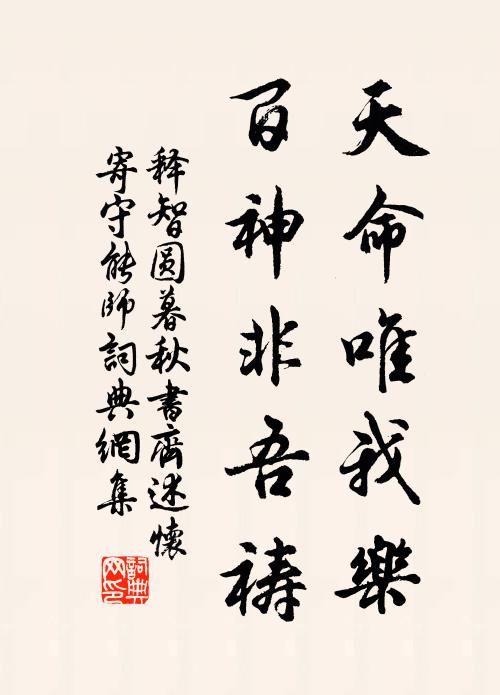 天命唯我樂
百神非吾禱
释智圆暮秋書齋述懷
寄守能師詞典網集
詞典网印